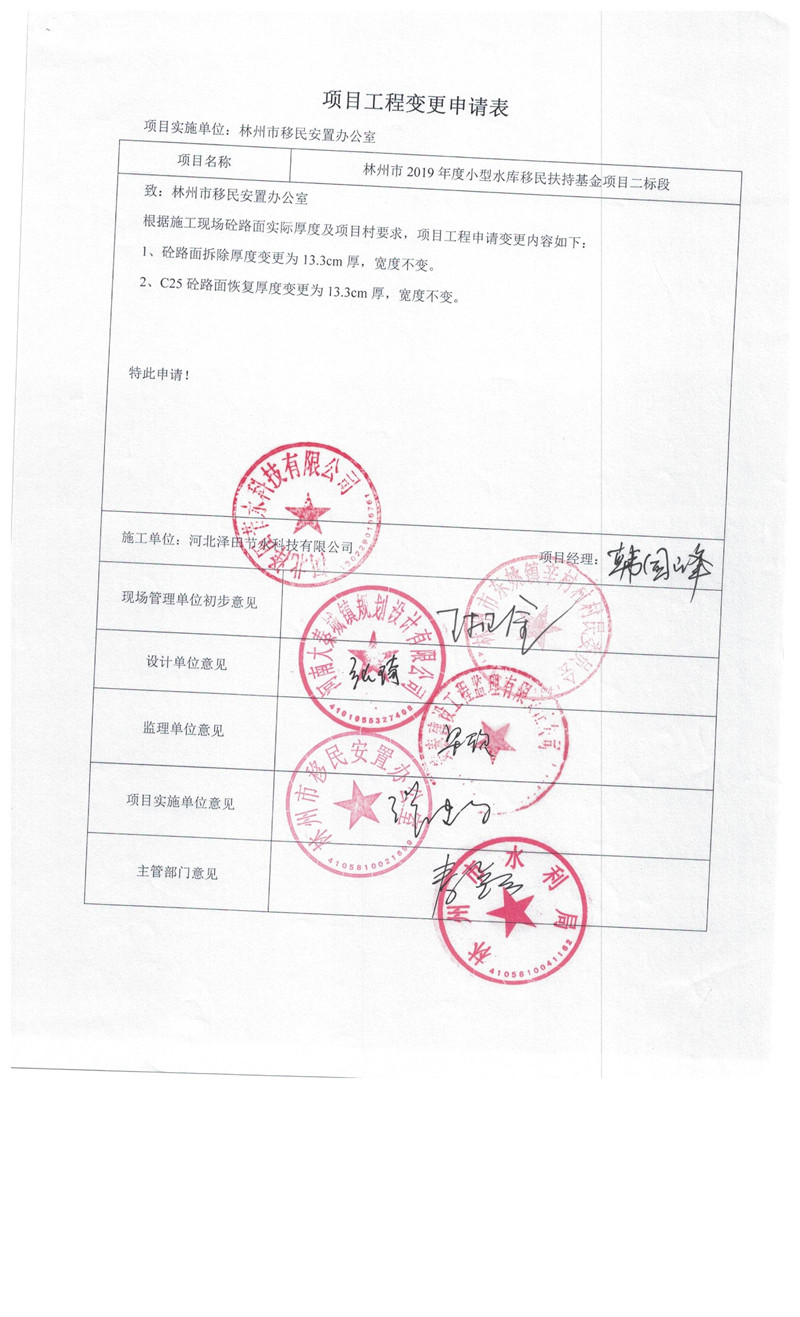 项目工程变更申请表
项目实施单位：林州市移民安置办公室
项目名称
林州市 2019 年度小型水库移民扶持基金项目二标段
致：林州市移民安置办公室
根据施工现场砼路面实际厚度及项目村要求，项目工程申请变更内容如下：
1、砼路面拆除厚度变更为 13.3cm 厚，宽度不变。
2、C25 砼路面恢复厚度变更为 13.3cm 厚，宽度不变。
特此申请！
河北泽田节水科技有限公司
施工单位：河北泽田节水科技有限公司
项目经理：韩国峰
现场管理单位初步意见
林州市东姚镇辛村村村民委员会
设计单位意见
河南大秦城镇规划设计有限公司
监理单位意见
工程监理有限
项目实施单位意见
林州市移民安置办公室
主管部门意见
林州市水利局
4105810041182